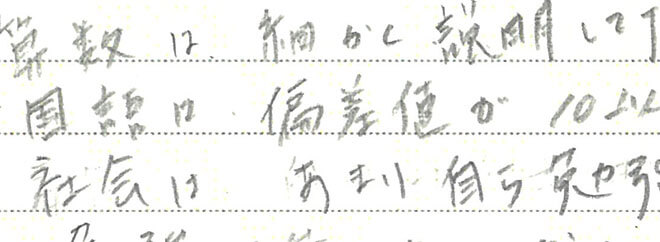 算数は、細かく説明して
国語は 偏差値が10以
社会は あまり自ら勉強